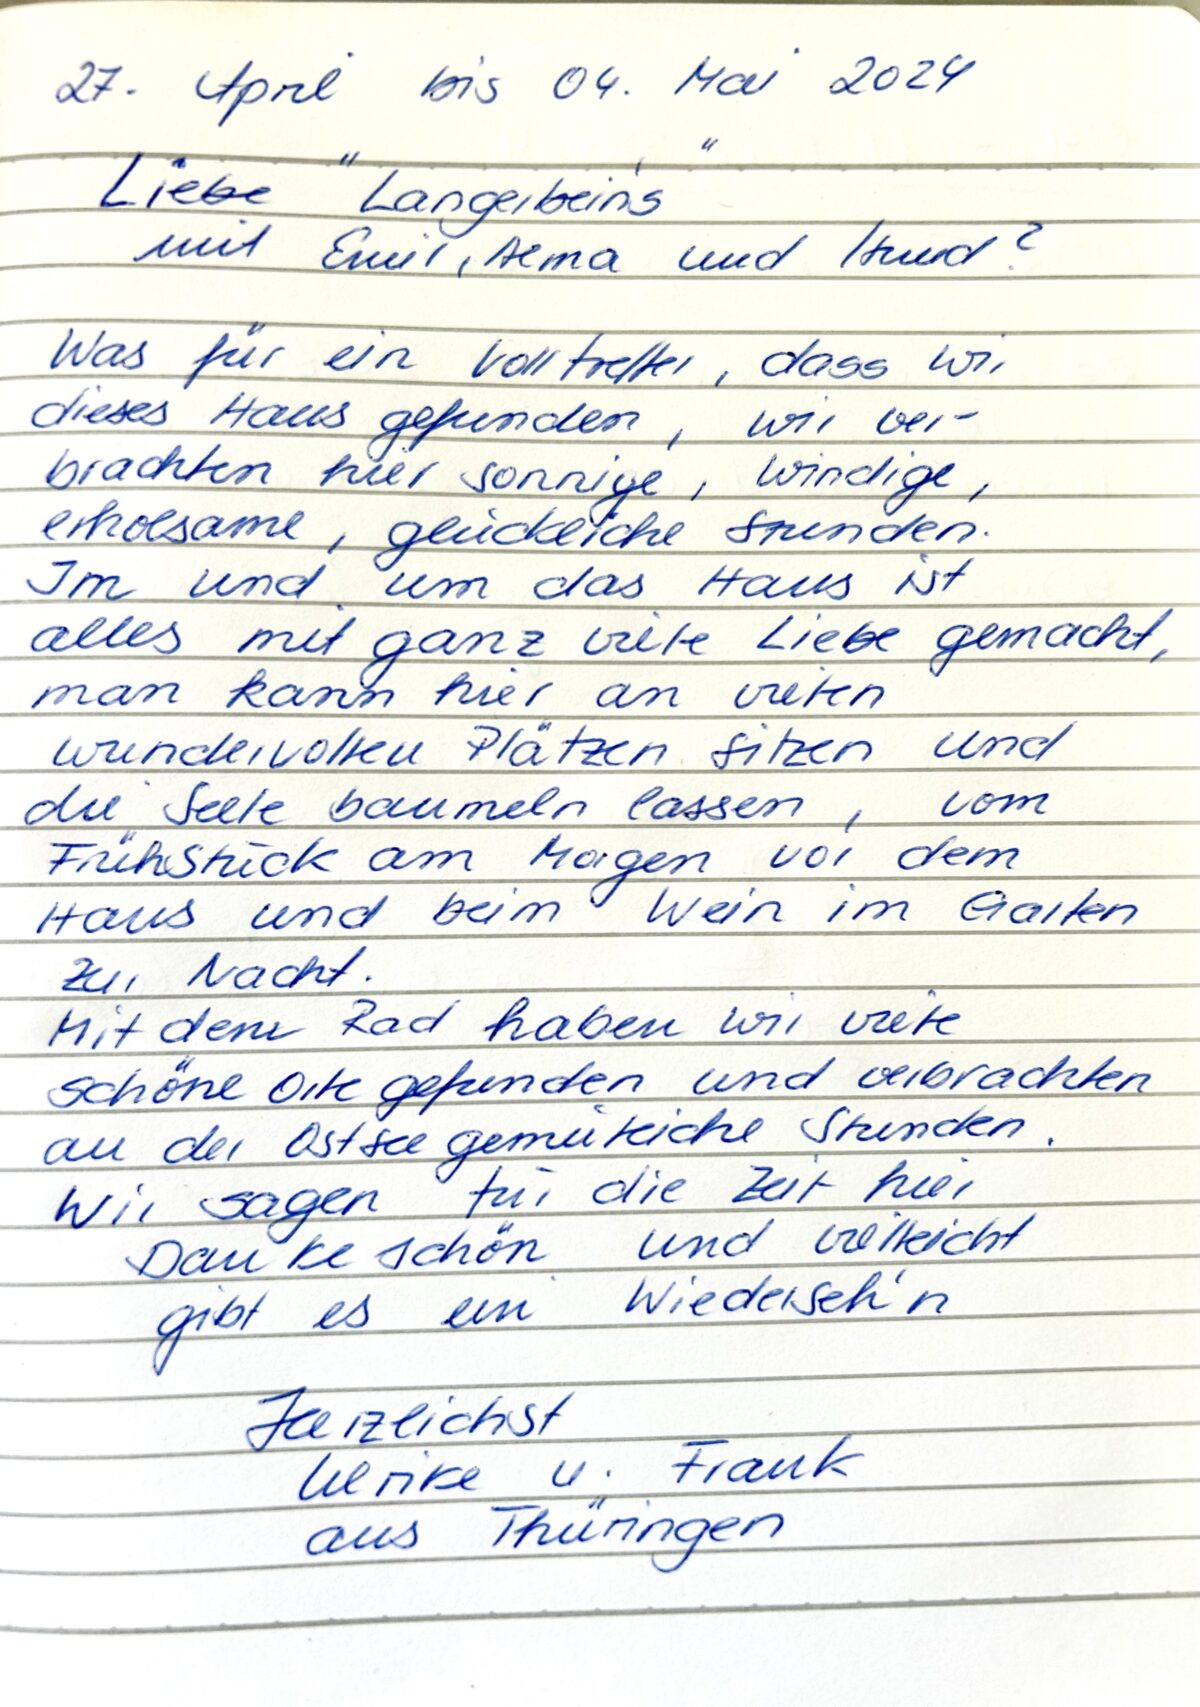 27. April bis 04. Mai 2024
Liebe "Langerbein's"
mit Emil, Alma und Hund?
Was für ein Volltreffer, dass wir
dieses Haus gefunden, wir ver-
brachten hier sonnige, windige,
erholsame, glückliche Stunden.
Im und um das Haus ist
alles mit ganz viele Liebe gemacht,
man kann hier an vielen
wundervollen Plätzen sitzen und
die Seele baumeln lassen, vom
Frühstück am Morgen vor dem
Haus und beim Wein im Garten
zur Nacht.
Mit dem Rad haben wir viele
schöne Orte gefunden und verbrachten
an der Ostsee gemütliche Stunden.
Wir sagen für die Zeit hier
Dankeschön und vielleicht
gibt es ein Wiederseh'n
Herzlichst
Ulrike u. Frank
aus Thüringen